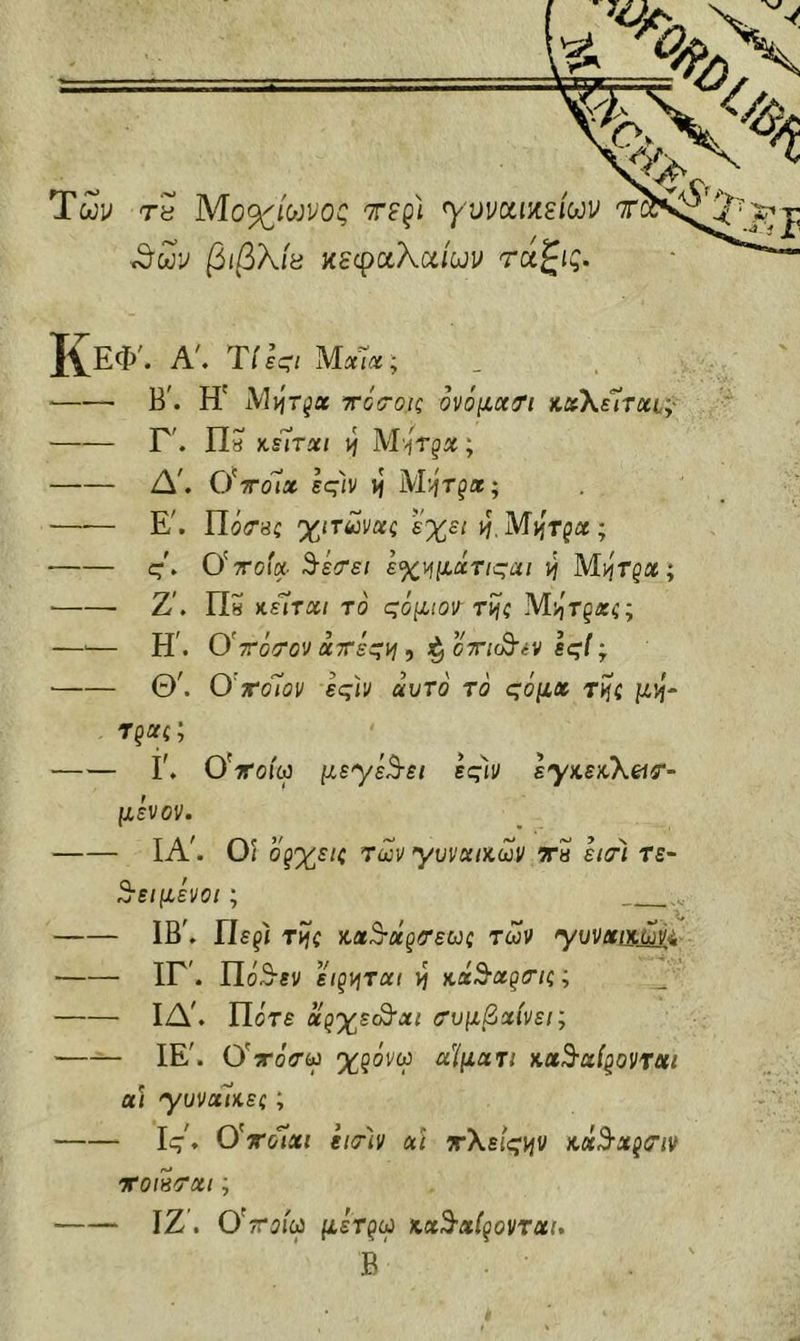 Τῶν τȣ͂ Μοχίωνος περὶ γυναικείων πα-
θῶν βιβλίȣ κεφαλαίων τάξις.
ΚΕΦ'. Α'. Τί ἐϛι Μαῖα;
—— Β'. Ἡ Μήτρα πόσοις ὀνόμασι καλεῖται;
—— Γ'. Πȣ͂ κεῖται ἡ Μήτρα;
—— Δ'. Ὁποῖα ἐϛὶν ἡ Μήτρα;
—— Ε'. Πόσȣς χιτῶνας ἔχει ἡ Μήτρα;
—— ϛ'. Ὁποίᾳ θέσει ἐχημάτιϛαι ἡ Μήτρα;
—— Ζ'. Πȣ͂ κεῖται τὸ ϛόμιον τῆς Μήτρας;
—— Η'. Ὁπόσον ἀπέϛη, ϗ ὄπιοθεν ἐϛί;
—— Θ'. Ὁποῖον ἐϛὶν ἀυτὸ τὸ ϛόμα τῆς μή-
τρας;
—— Ι'. Ὁποίῳ μεγέθει ἐϛὶν ἐγκεκλεισ-
μένον.
—— ΙΑ'. Οἱ ὄρχεις τῶν γυναικῶν πȣ͂ εἰσὶ τε-
θειμένοι;
—— ΙΒ'. Περὶ τῆς καθάρσεως τῶν γυναικῶν.
—— ΙΓ'. Πόθεν ἔιρηται ἡ κάθαρσις;
—— ΙΔ'. Πότε ἄρχεσθαι συμβαίνει;
—— ΙΕ'. Ὁπόσῳ χρόνῳ αἵματι καθαίρονται
αἱ γυναῖκες;
—— Ιϛ'. Ὁποῖαι εἰσὶν αἱ πλείϛην κάθαρσιν
ποιȣ͂σαι;
—— ΙΖ'. Ὁποίῳ μέτρῳ καθαίρονται.
Β